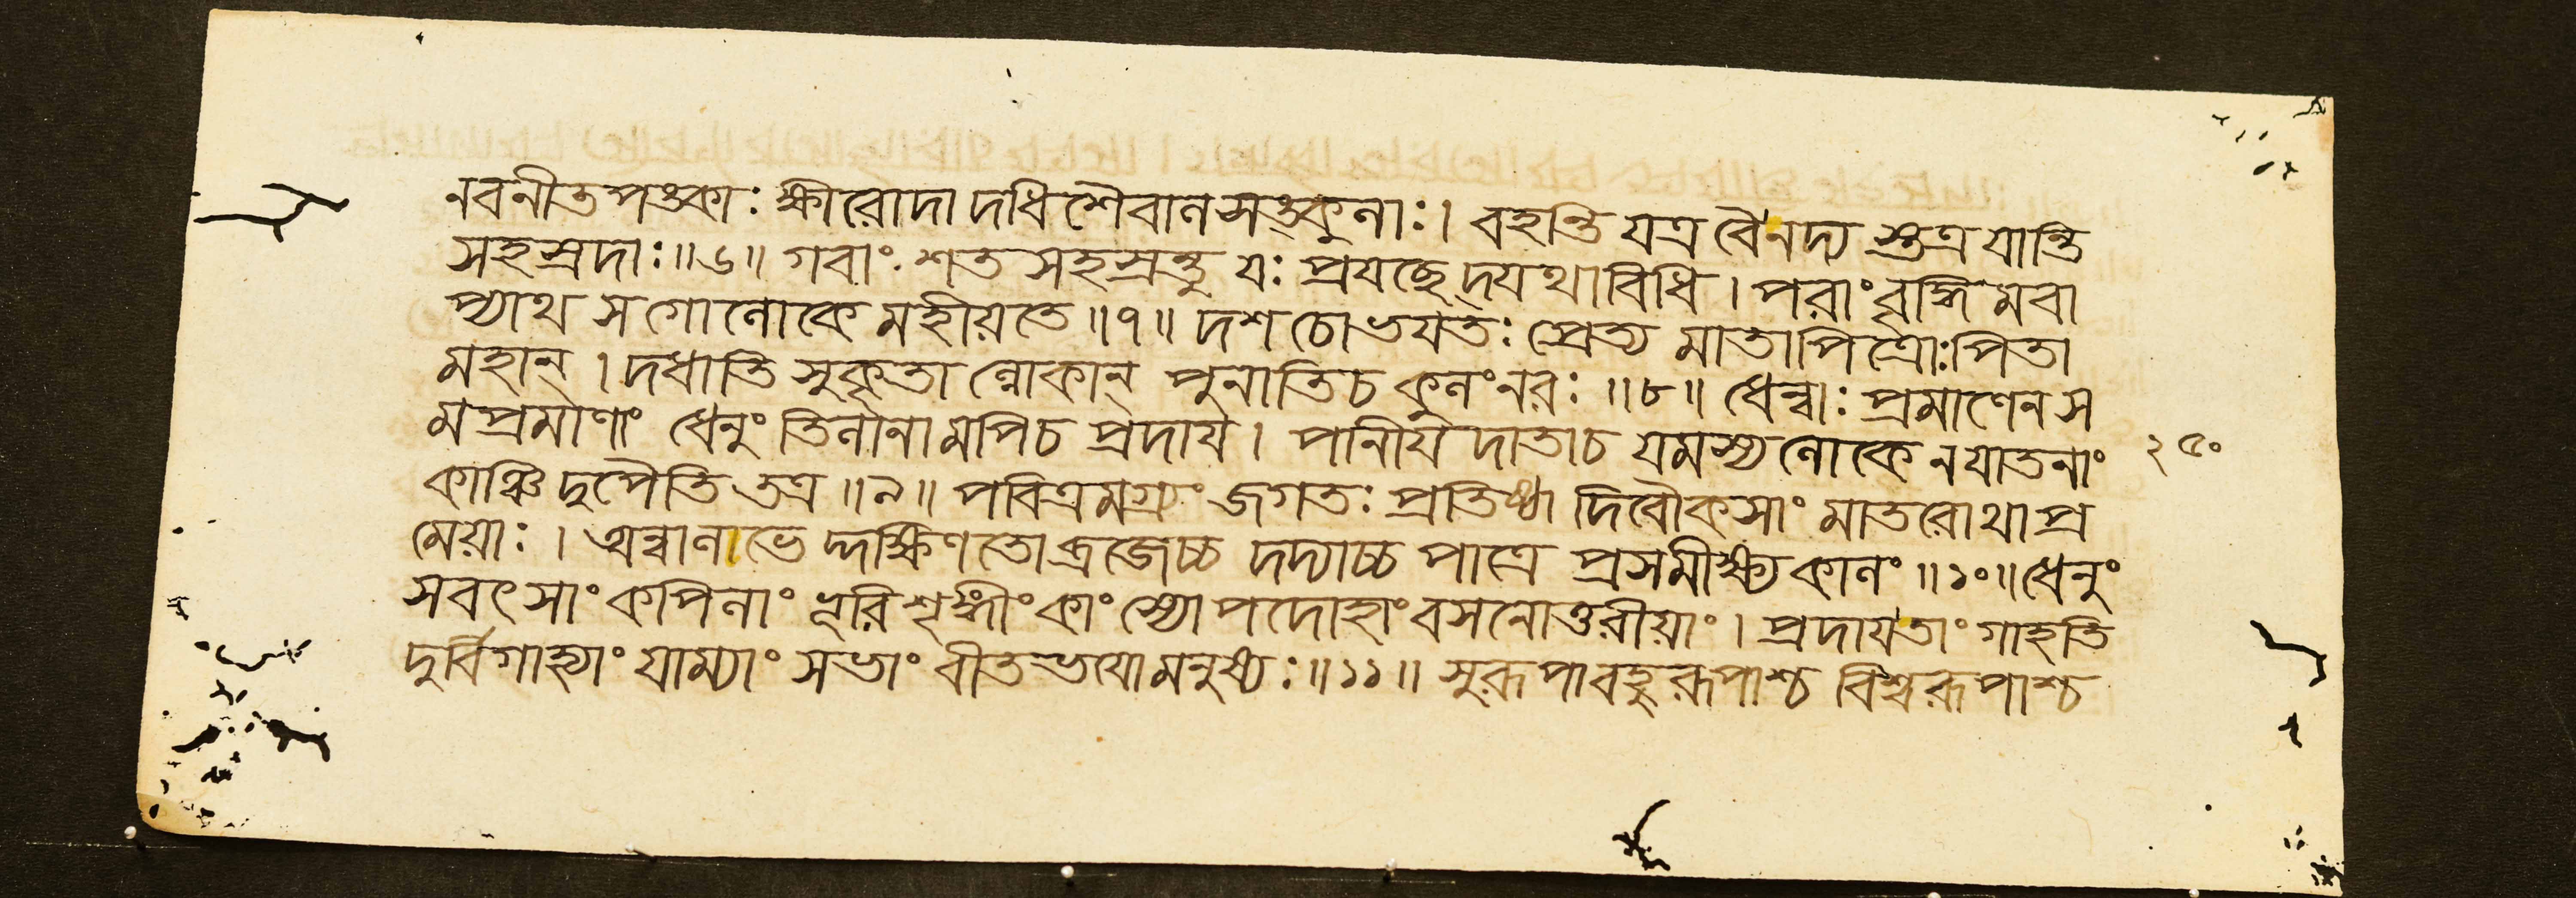 নবনীতপঙ্কাঃ ক্ষীরোদা দধিশৈবালসঙ্কুলাঃ। বহন্তি যত্র বৈ নদ্য স্তত্র যান্তি
সহস্রদাঃ॥৬॥ গবাং শত সহস্রন্তু যঃ প্রযচ্ছেদ্যথাবিধি। পরাং বৃদ্ধিমবা
প্যাথ সগোলোকে মহীয়তে॥৭॥ দশ চোভযতঃ প্রেত্য মাতাপিত্রোঃপিতা
মহান্। দধাতি সুকৃতা ল্লোকান্ পুনাতিচ কুলংনরঃ॥৮॥ ধেন্বাঃ প্রমাণেন স
মপ্রমাণাং ধেনুং তিলানামপিচ প্রদায। পানীয দাতাচ যমস্য লোকে নযাতনাং
কাঞ্চিদুপৈতি তত্র॥৯॥ পবিত্রমগ্র্যং জগতঃ প্রতিষ্ঠা দিবৌকসাং মাতরোথাপ্র
মেয়াঃ। অন্বালভেদ্দক্ষিণতোব্রজেচ্চ দদ্যাচ্চ পাত্রে প্রসমীক্ষ্য কালং॥১০॥ধেনুং
সবৎসাং কপিলাং ভূরিশৃঙ্গীং কাংস্যোপদোহাং বসনোত্তরীয়াং। প্রদাযতাং গাহতি
দুর্বিগাহ্যাং যাম্যাং সভাং বীতভযোমনুষ্যঃ॥১১॥ সুরূপাবহুরূপাশ্চ বিশ্বরূপাশ্চ
২৫০